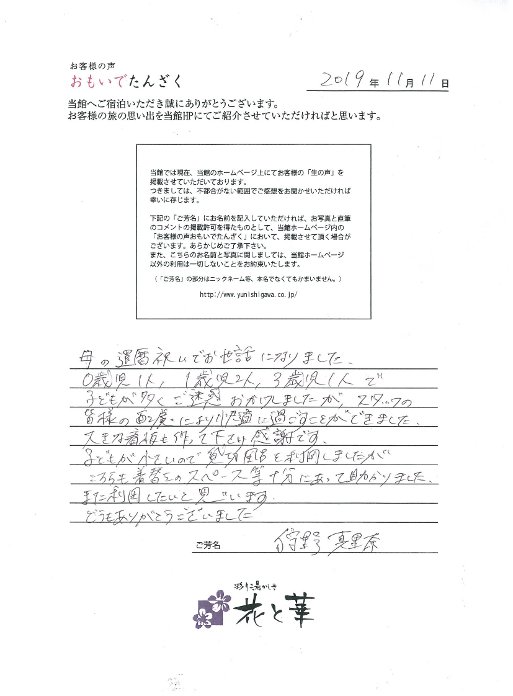 お客様の声
おもいでたんざく
2019年11月11日
当館へご宿泊いただき誠にありがとうございます。
お客様の旅の思い出を当館HPにてご紹介させていただければと思います。
当館では現在、当館のホームページ上にてお客様の「生の声」を
掲載させていただいております。
つきましては、不都合がない範囲でご感想をお聞かせいただければ
幸いに存じます。
下記の「ご芳名」にお名前を記入していただければ、お写真と直筆
のコメントの掲載許可を得たものとして、当館ホームページ内の
「お客様の声おもいでたんざく」において、掲載させて頂く場合が
ございます。あらかじめご了承下さい。
また、こちらのお名前と写真に関しましては、当館ホームページ
以外の利用は一切しないことをお約束いたします。
(「ご芳名」の部分はニックネーム等、本名でなくてもかまいません。)
http://www.yunishigawa.co.jp/
母の還暦祝いでお世話になりました。
0歳児1人、1歳児2人、3歳児1人で
子どもが多くご迷惑おかけしましたが、スタッフの
皆様の配慮により快適に過ごすことができました。
大きな看板も作って下さり感謝です。
子どもが小さいので貸切風呂を利用しましたが
こちらも着替えのスペース等十分にあって助かりました。
また利用したいと思います。
どうもありがとうございました
ご芳名 狩野 真里奈
花と華